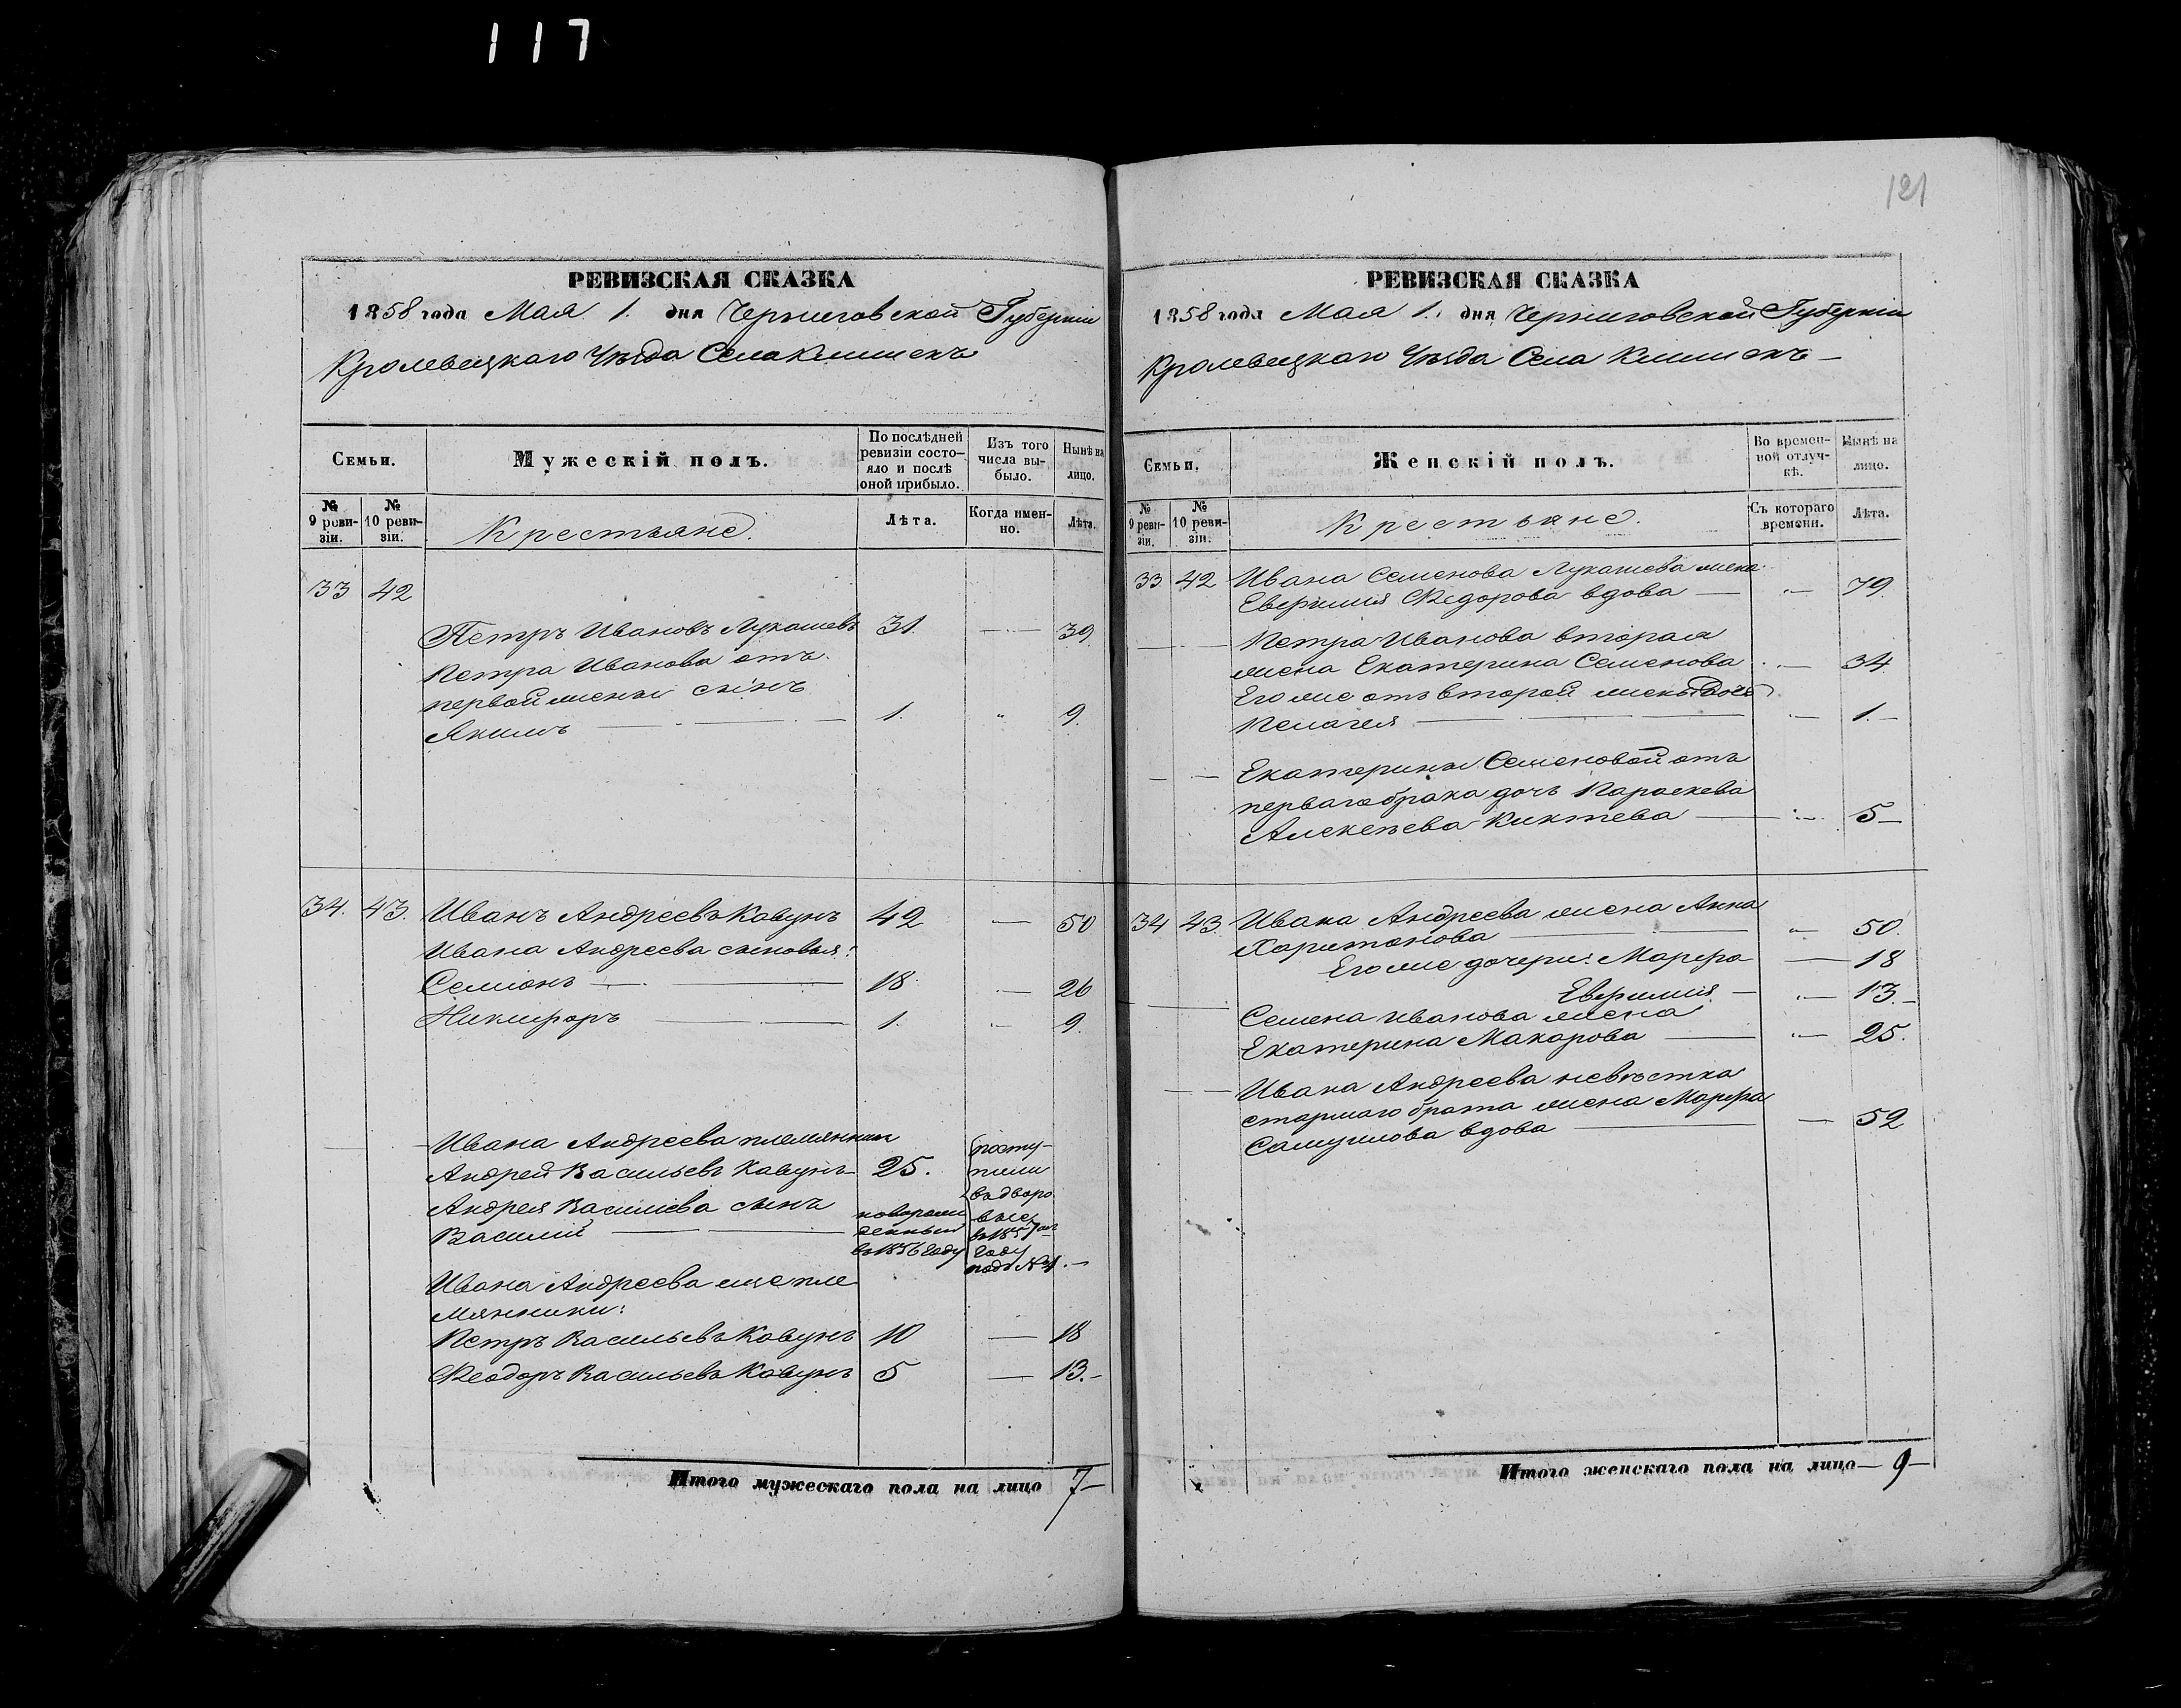 117
121
РЕВИЗСКАЯ СКАЗКА
1858 года Мая 1. дня Черниговской Губерніи
Кролевецкаго Уѣзда Села Клишекъ
Семьи.
Мужескій полъ.
По послѣдней ревизіи состо-
яло и послѣ
оной прибыло.
Изъ того
числа вы-
было.
Нынѣ на
лицо.
№
9 реви-
зіи.
№
10 реви-
зіи.
Крестьяне.
Лѣта.
Когда имен-
но.
Лѣта.
33 42
Петръ Ивановъ Лукашевъ 31. — 39
Петра Иванова отъ
первой жены сынъ
Якимъ — 1. " 9.
34. 43. Иванъ Андреевъ Кавунъ 42 — 50
Ивана Андреева сыновья:
Семіонъ — 18. — 26
Никифоръ — 1. — 9.
Ивана Андреева племянники
Андрей Васильевъ Кавунъ 25.
Андрея Васильева сынъ
Василій —
новорож
денный
въ 1856 году
посту-
пили
въ дворо
вые
въ 1857ом
году
подъ №
Ивана Андреева еще пле
мянники:
Петръ Васильевъ Кавунъ 10 — 18
Феодоръ Васильевъ Кавунъ 5 — 13.-
Итого мужескаго пола на лицо 7-
РЕВИЗСКАЯ СКАЗКА
1858 года Мая 1. дня Черниговской Губерніи
Кролевецкаго Уѣзда Села Клишекъ —
Семьи.
Женскій полъ.
Во времен-
ной отлуч-
кѣ.
Нынѣ на
лицо.
№
9 реви-
зіи.
№
10 реви-
зіи.
Крестьяне.
Съ котораго
времени.
Лѣта.
33 42 Ивана Семенова Лукашева жена
Евфимія Федорова вдова — "— 79.
Петра Иванова вторая
жена Екатерина Семенова — 34.
Его же отъ второй жены дочь
Пелагея — 1.-
Екатерины Семеновой отъ
перваго брака дочь Параскева
Алексѣева Киктева — 5-
34 43. Ивана Андреева жена Анна
Харитонова — "— 50.
Его же дочери: Марфа — 18
Евфимія — "— 13.-
Семена Иванова жена
Екатерина Макарова — "— 25.
Ивана Андреева невѣстка
старшаго брата жена Марфа
Самуилова вдова — 52
Итого женскаго пола на лицо — 9-